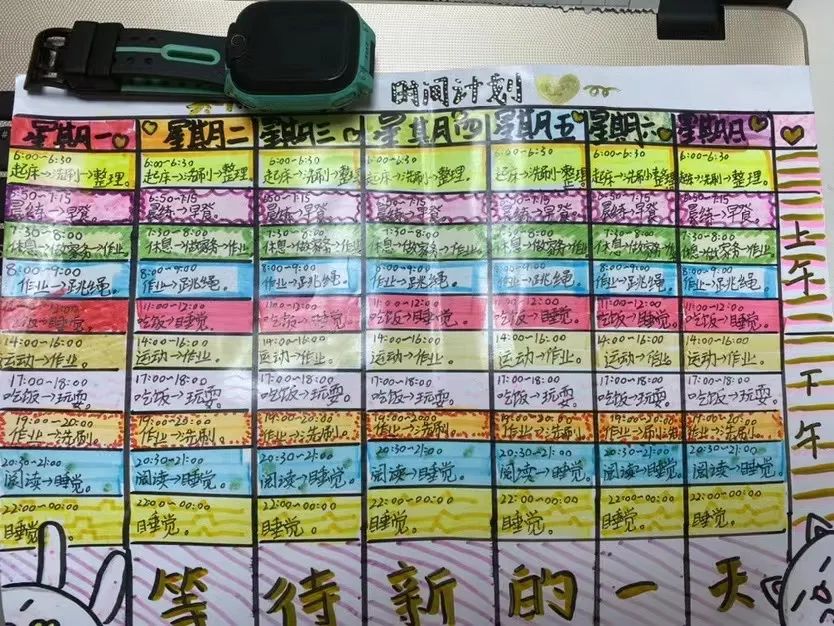 时间计划
星期一 星期二 星期三 星期四 星期五 星期六 星期日
6:00~6:30 6:00~6:30 6:00~6:30 6:00~6:30 6:00~6:30 6:00~6:30 6:00~6:30
起床→洗刷→整理。 起床→洗刷→整理。 起床→洗刷→整理 起床→洗刷→整理。 起床→洗刷→整理 起床→洗刷→整理 起床→洗刷→整理。
6:50~7:15 6:50~7:15 6:50~7:15 6:50~7:15 6:50~7:15 6:50~7:15
晨练→早餐。 晨练→早餐。 晨练→早餐。 晨练→早餐。 晨练→早餐。 晨练→早餐。 晨练→早餐。
7:30~8:00 7:30~8:00 7:30~8:00 7:30~8:00 7:30~8:00 7:30~8:00 7:30~8:00
休息→做家务→作业 休息→做家务→作业 休息→做家务→作业 休息→做家务→作业 休息→做家务→作业 休息→做家务→作业 休息→做家务→作业
8:00~9:00 8:00~9:00 8:00~9:00 8:00~9:00 8:00~9:00 8:00~9:00 8:00~9:00
作业→跳绳。 作业→跳绳。 作业→跳绳。 作业→跳绳。 作业→跳绳。 作业→跳绳。 作业→跳绳。
11:00~12:00 11:00~12:00 11:00~12:00 11:00~12:00 11:00~12:00 11:00~12:00
吃饭→睡觉。 吃饭→睡觉。 吃饭→睡觉。 吃饭→睡觉。 吃饭→睡觉。 吃饭→睡觉。 吃饭→睡觉。
14:00~16:00 14:00~16:00 14:00~16:00 14:00~16:00 14:00~16:00 14:00~16:00 14:00~16:00
运动→作业。 运动→作业。 运动→作业。 运动→作业。 运动→作业。 运动→作业。 运动→作业。
17:00~18:00 17:00~18:00 17:00~18:00 17:00~18:00 17:00~18:00 17:00~18:00 17:00~18:00
吃饭→玩耍。 吃饭→玩耍。 吃饭→玩耍。 吃饭→玩耍。 吃饭→玩耍。 吃饭→玩耍。 吃饭→玩耍。
19:00~20:00 19:00~20:00 19:00~20:00 19:00~20:00 19:00~20:00 19:00~20:00 19:00~20:00
作业→洗刷。 作业→洗刷。 作业→洗刷。 作业→洗刷。 作业→洗刷。 作业→洗刷。
20:30~21:00 20:30~21:00 20:30~21:00 20:30~21:00 20:30~21:00 20:30~21:00 20:30~21:00
阅读→睡觉。 阅读→睡觉。 阅读→睡觉。 阅读→睡觉。 阅读→睡觉。 阅读→睡觉。 阅读→睡觉。
22:00~00:00 22:00~00:00 22:00~00:00 22:00~00:00 22:00~00:00 22:00~00:00 22:00~00:00
睡觉。 睡觉。 睡觉。 睡觉。 睡觉。 睡觉。 睡觉。
等待新的一天
上午
下午